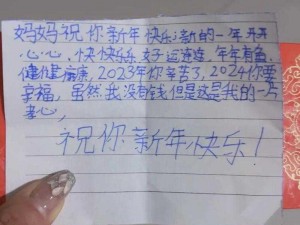 妈妈祝你新年快乐新的一年开开
心心,快快乐乐,好运连连,年年有鱼,
健健康康,2023年你辛苦了,2024你要
享福,虽然我没有钱但是这是我的一片
孝心,
祝你新年快乐!